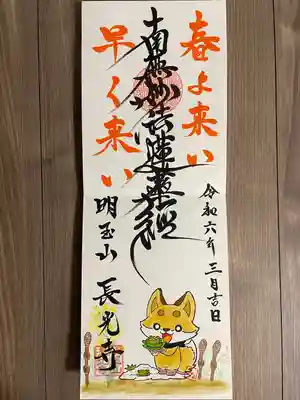 春よ来い
南無妙法蓮華経
早く来い
令和六年三月吉日
明玉山 長光寺